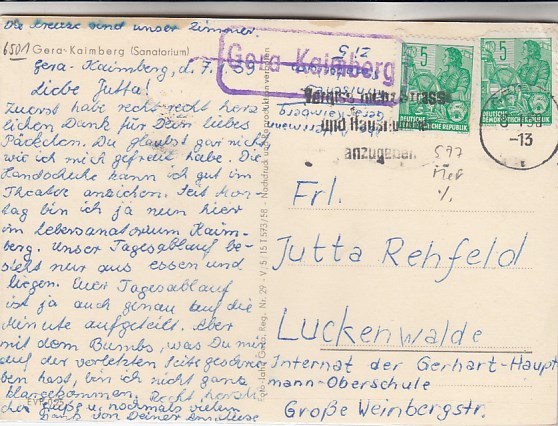 Die Kreuze sind unser Zimmer.
6501 Gera-Kaimberg (Sanatorium)
Gera-Kaimberg, d. 7.1.59
Liebe Jutta!
Zuerst habe recht recht herz-
lichen Dank für Dein liebes
Päckchen. Du glaubst gar nicht
wie ich mich gefreut habe. Die
Handschuhe kann ich gut im
Theater anziehen. Seit Mon-
tag bin ich ja nun hier
im Lebersanatorium Kaim-
berg. Unser Tagesablauf be-
steht nur aus essen und
liegen. Euer Tagesablauf
ist ja auch genau auf die
Minute aufgeteilt. Aber
mit dem Bumbs, was Du mir
auf der vorletzten Seite geschrie-
ben hast, bin ich nicht ganz
klargekommen. Recht herzli-
che Grüße u. nochmals vielen
Dank von Deiner Anneliese
EVP 0,95
Foto-Jahr Gera, Reg. Nr. 29 V/5/15 T 573/58 - Nachdruck
Gera-Kaimberg
Vergiß nicht Straße
und Hausnummer
anzugeben
5
DEUTSCHE DEMOKRATISCHE REPUBLIK
5
DEUTSCHE DEMOKRATISCHE REPUBLIK
-13
597
Frl.
Jutta Rehfeld
Luckenwalde
Internat der Gerhart-Haupt-
mann-Oberschule
Große Weinbergstr.